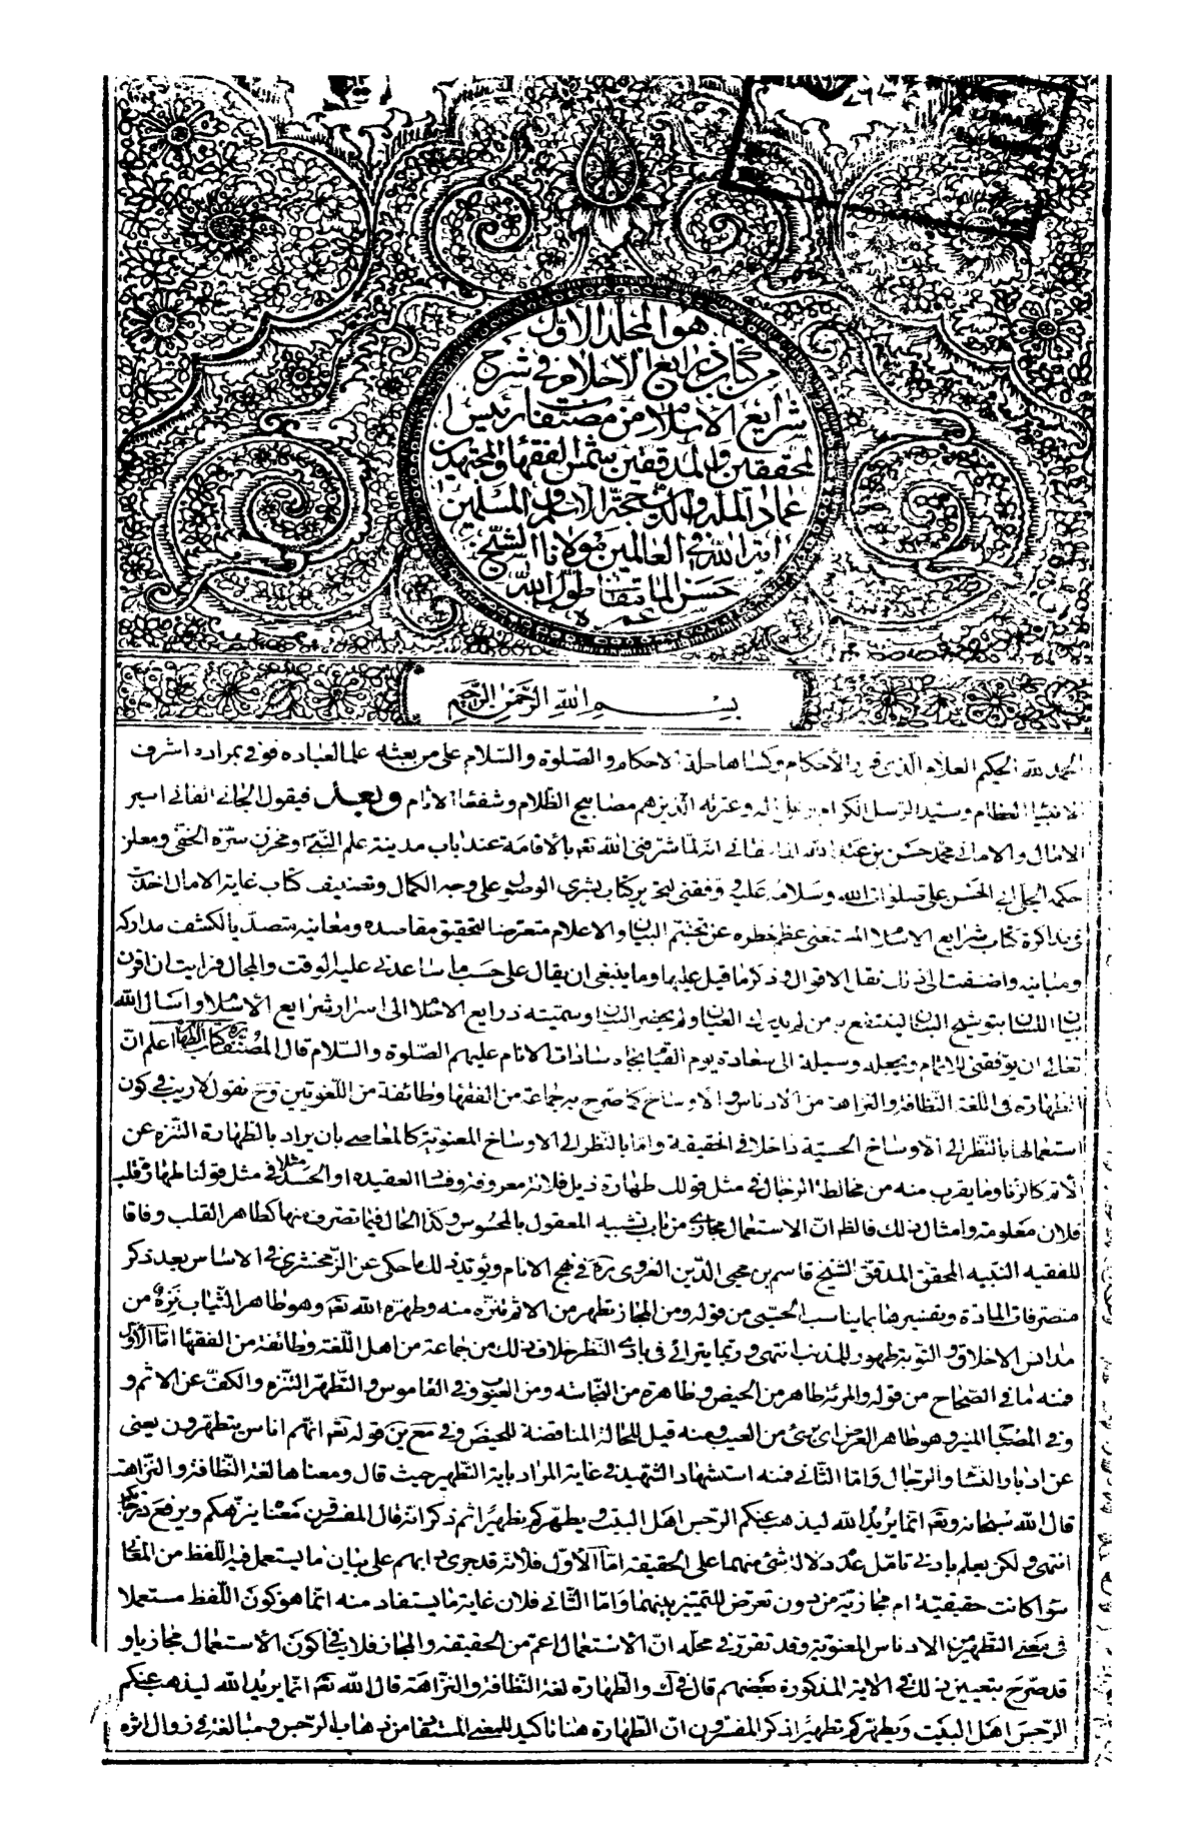 هو المجلد الاول
من كتاب ذرايع الاحلام في شرح
شرايع الاسلام من مصنفات رئيس
المحققين والمدققين شمس الفقهاء والمجتهدين
عماد الملة والدين حجة الاسلام والمسلمين
اية الله في العالمين مولانا الشيخ
حسن المامقاني طول الله
عمره
بسم الله الرحمن الرحيم
الحمد لله الحكيم العلام الذي والصلوة والسلام على من بعثه علما لعباده فوفى بمراده اشرف
الانبياء العظام وسيد الرسل الكرام وعلى اله وعترته الذين هم مصابيح الظلام وشفعاء الانام وبعد فيقول الجاني الفاني اسير
الامال والاماني محمد حسن بن عبد الله المامقاني انه لما شرفني الله تعم بالاقامة عند باب مدينة علم النبي ومخزن ستره الخفي ومعلن
حكمه الجلي ابي الحسن علي صلوات الله وسلامه عليه ووفقني لتحرير كتاب بشرى الوصول على وجه الكمال وتصنيف كتاب غاية الامال اخذت
في مذاكرة كتاب شرايع الاسلام المستغنى عظم خطره عن تجشم البيان والاعلام متعرضا لتحقيق مقاصده ومعانيه متصديا لكشف مداركه
ومبانيه واضفت الى ذلك نقل الاقوال وذكر ما قيل عليها وما ينبغي ان يقال على حسب ما ساعدني عليه الوقت والمجال فرايت ان اقرن
بيان اللسان بتوشيح البنان لينتفع به من لم يدرك العيان ولم يحضر البيان وسميته ذرايع الاحلام الى اسرار شرايع الاسلام واسال الله
تعالى ان يوفقني للاتمام ويجعله وسيلة الى سعادة يوم القيام بجاه سادات الانام عليهم الصلوة والسلام قال المصنف ره كتاب الطهارة اعلم ان
الطهارة في اللغة النظافة والنزاهة من الادناس والاوساخ كما صرح به جماعة من الفقهاء وطائفة من اللغويين وح نقول لا ريب في كون
استعمالها بالنظر الى الاوساخ الحسية داخلا في الحقيقة واما بالنظر الى الاوساخ المعنوية كالمعاصي بان يراد بالطهارة التنزه عن
الاثم كالزنا وما يقرب منه من مخالطة الرجال في مثل قولك طهارة ذيل فلانة معروفة وفساد العقيدة او الحسد مثلا في مثل قولنا طهارة قلب
فلان معلومة وامثال ذلك فالظ ان الاستعمال مجازي من باب تشبيه المعقول بالمحسوس وكذا الحال فيما تصرف منها كطاهر القلب وفاقا
للفقيه النبيه المحقق المدقق الشيخ قاسم بن محيي الدين الغروي ره في نهج الانام ويؤيد ذلك ما حكى عن الزمخشري في الاساس بعد ذكر
متصرفات المادة وتفسيرها بما يناسب الحسي من قوله ومن المجاز تطهر من الاثم تنزه منه وطهره الله تعم وهو طاهر الثياب نزه من
مدانس الاخلاق والتوبة طهور للمذنب انتهى وربما يترائى في بادي النظر خلاف ذلك من جماعة من اهل اللغة وطائفة من الفقهاء اما الاول
فمنه ما في الصحاح من قوله والمرئة طاهر من الحيض وطاهرة من النجاسة ومن العيوب وفي القاموس والتطهر التنزه والكف عن الاثم و
وفي المصباح المنير وهو طاهر العرض اي بريء من العيب ومنه قيل للحالة المناقضة للحيض وفي مع ين قوله تعم انهم اناس يتطهرون يعني
عن ادبار النساء والرجال واما الثاني فمنه استشهاد الشهيد في غاية المراد باية التطهير حيث قال ومعناها لغة النظافة والنزاهة
قال الله سبحانه وتعم انما يريد الله ليذهب عنكم الرجس اهل البيت ويطهركم تطهيرا ثم ذكر انه قال المفسرون معناه ينزهكم ويرفع ذكركم
انتهى ولكن يعلم بادنى تامل عدم دلالة شيء منهما على الحقيقة اما الاول فلانه قد جرى دابهم على بيان ما يستعمل فيه اللفظ من المعاني
سواء كانت حقيقية ام مجازية من دون تعرض للتميز بينهما واما الثاني فلان غاية ما يستفاد منه انما هو كون اللفظ مستعملا
في معنى التطهير من الادناس المعنوية وقد تقرر في محله ان الاستعمال اعم من الحقيقة والمجاز فلا ينافي كون الاستعمال مجازيا و
قد صرح بتعيين ذلك في الاية المذكورة بعضهم قال في ك والطهارة لغة النظافة والنزاهة قال الله تعم انما يريد الله ليذهب عنكم
الرجس اهل البيت ويطهركم تطهيرا ذكر المفسرون ان الطهارة هنا تاكيد للمعنى المستفاد من ذهاب الرجس ومبالغة في زوال اثره